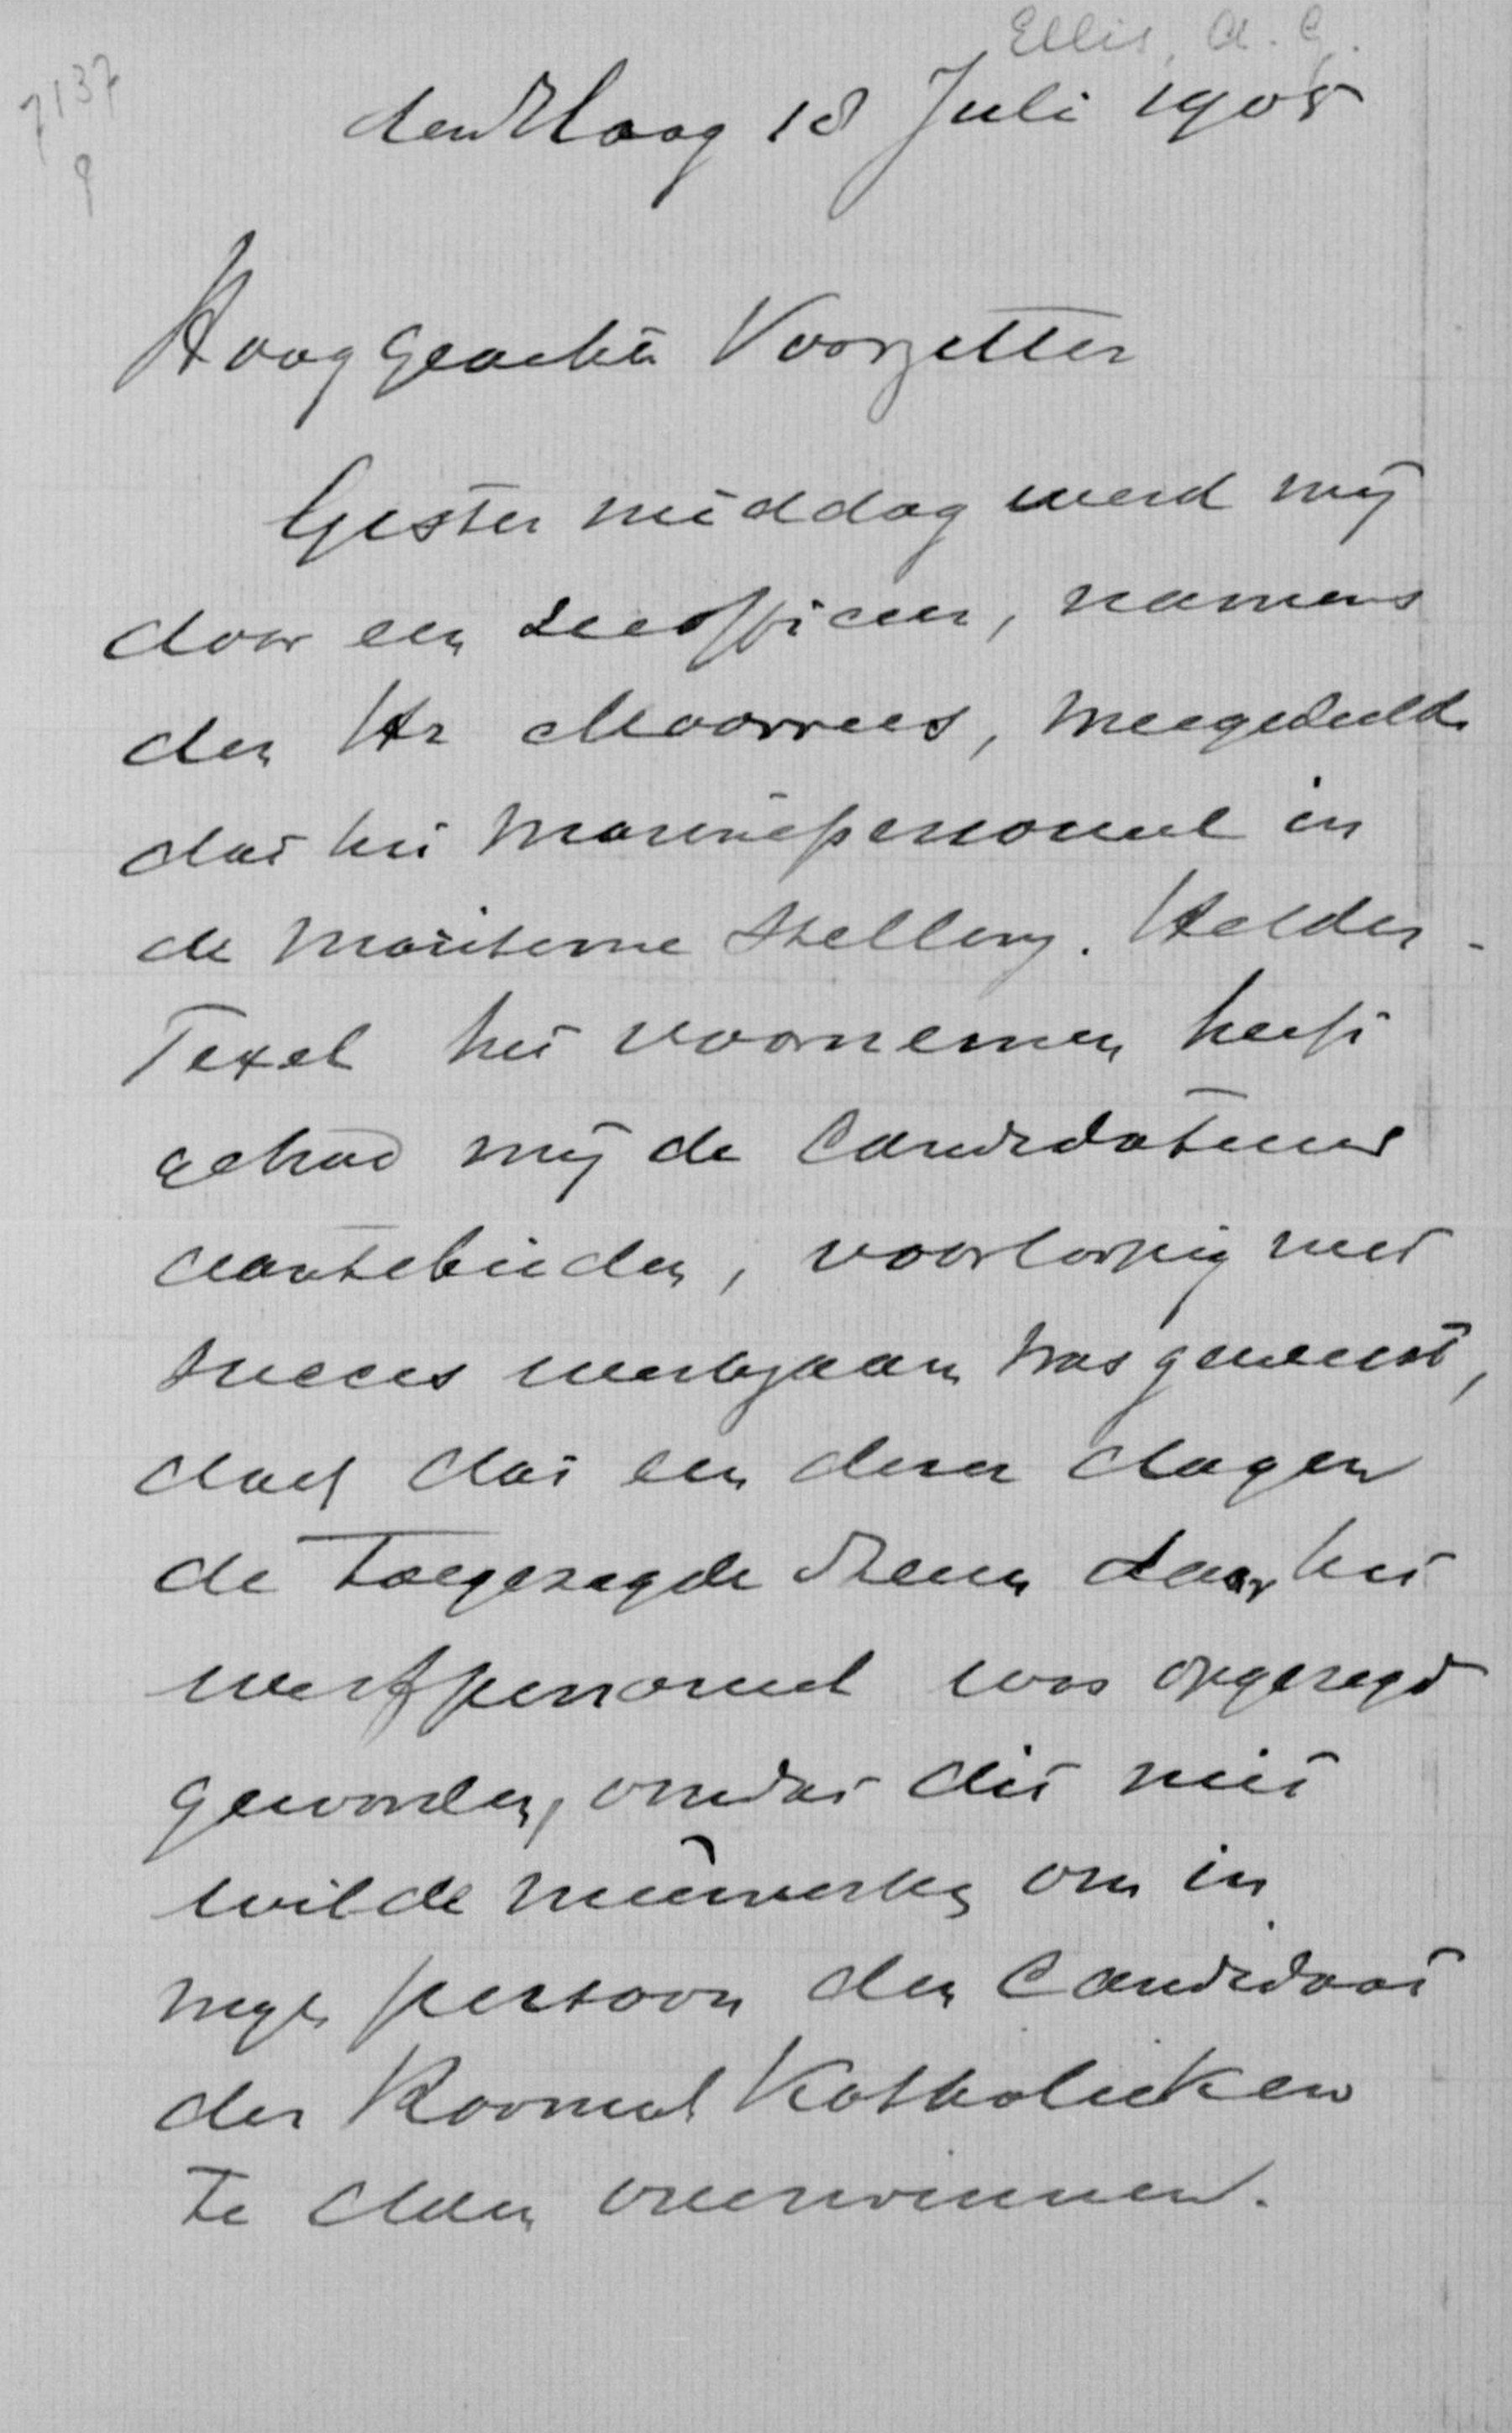 Ellis, A. G.
7137
9
den Haag 18 Juli 1905
Hooggeachte Voorzitter
Gister middag werd mij
door een zeeofficier, namens
den Hr Maarrees, meegedeeld
dat het marinepersoneel in
de maritieme stelling. Helder-
Texel het voornemen heeft
gehad mij de Candidatuur
aantebieden, voorloopig met
succes werkzaam was geweest,
doch dat een dezer dagen
de toegezegde steun door het
werfpersoneel was opgezegd
geworden, omdat dit niet
wilde meewerken om in
mijn persoon den Candidaat
der Roomsch Katholieken
te doen overwinnen.